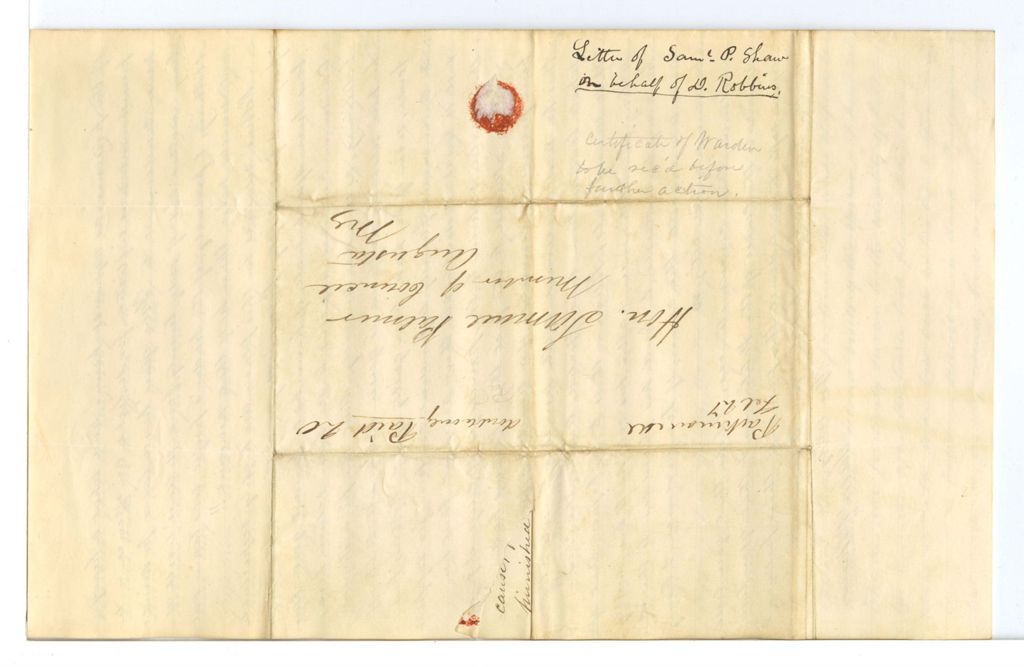 Letter of Saml. P. Shaw
on behalf of D. Robbins.
Certificate of Warden
to be rec'd before
further action.
Parkmanville
Feb 27
Paid 20
Hon. Samuel Palmer
Member of Council
Augusta
Me
cause,
punished